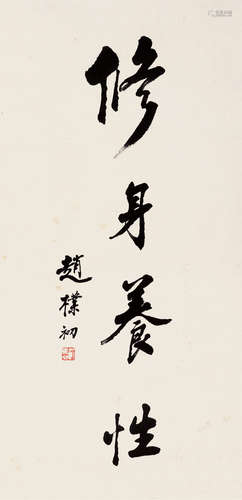 修身養性
趙樸初